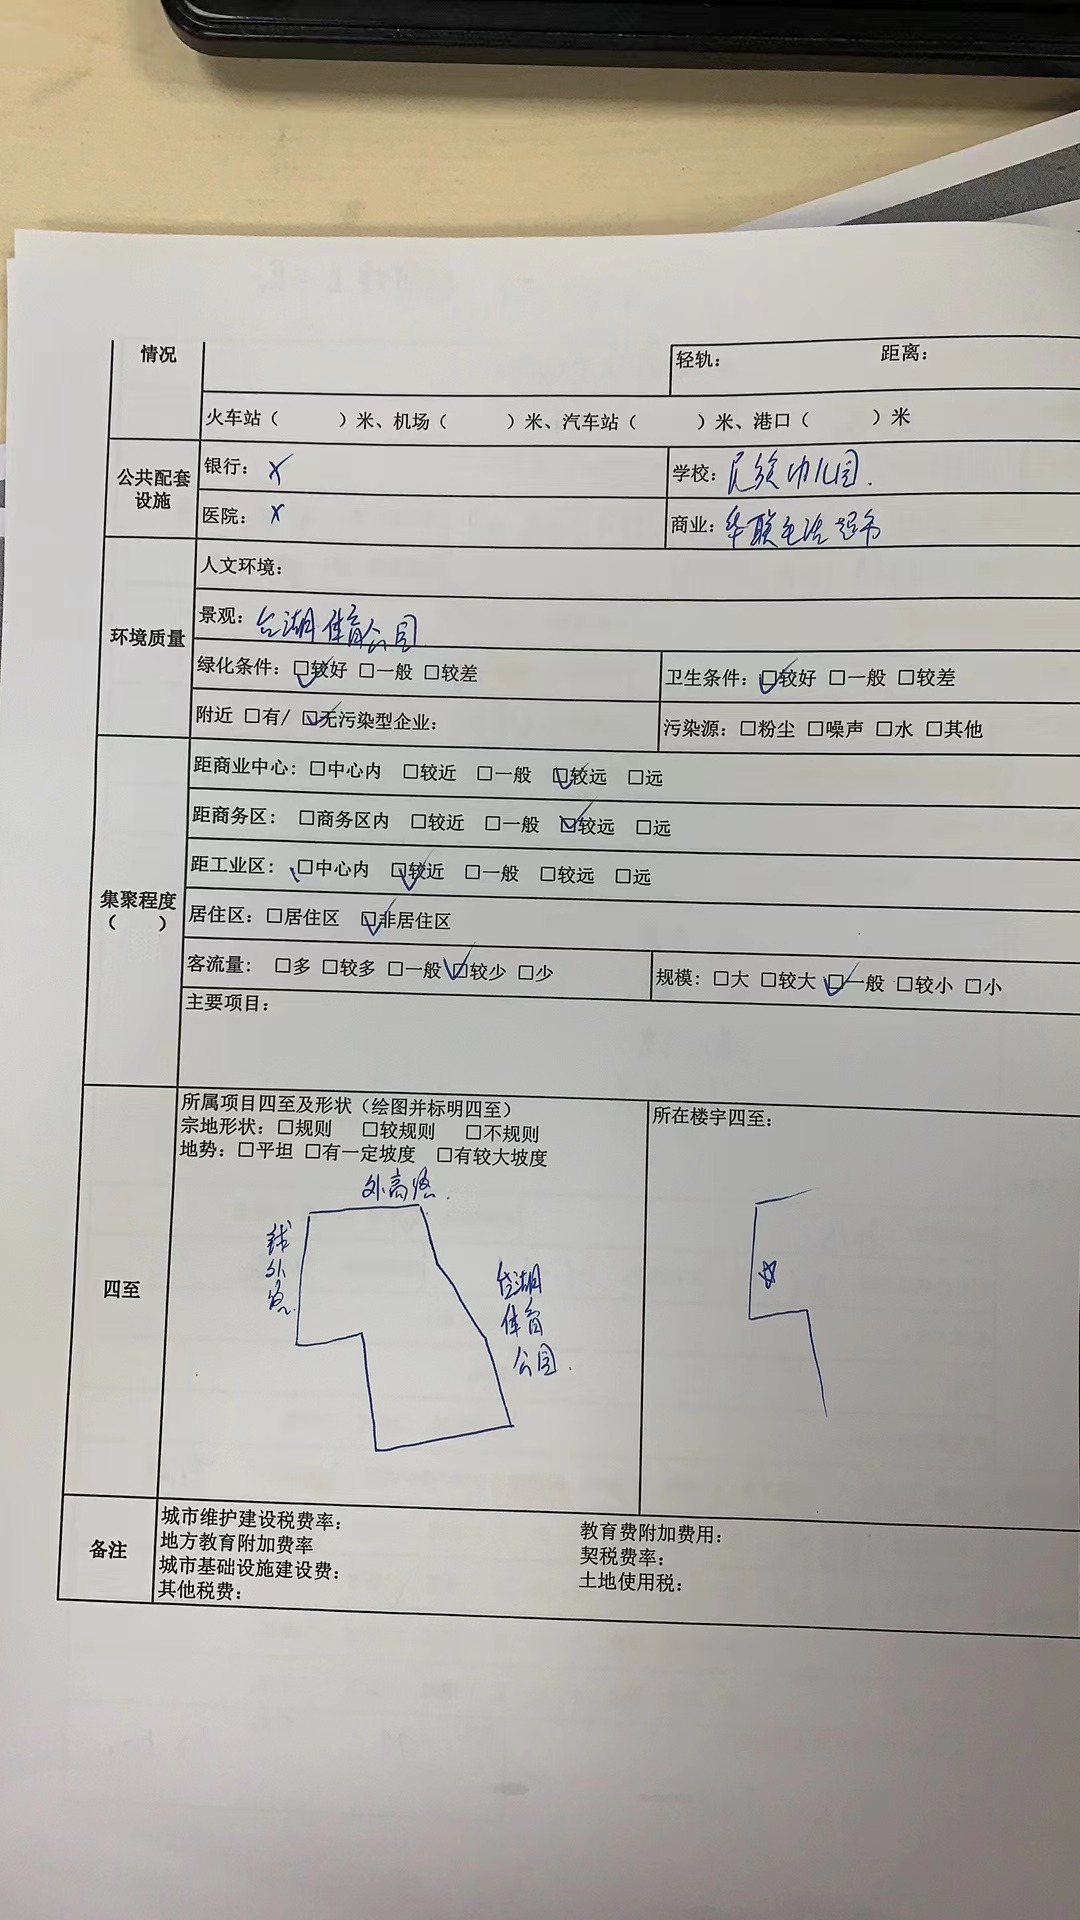 情况
轻轨： 距离：
火车站（ ）米、机场（ ）米、汽车站（ ）米、港口（ ）米
公共配套设施
银行： X
学校： 民族幼儿园.
医院： X
商业： 华联生活超市
环境质量
人文环境：
景观： 台湖体育公园
绿化条件：☑较好 □一般 □较差
卫生条件：☑较好 □一般 □较差
附近 □有/ ☑无污染型企业：
污染源：□粉尘 □噪声 □水 □其他
集聚程度
（ ）
距商业中心：□中心内 □较近 □一般 ☑较远 □远
距商务区： □商务区内 □较近 □一般 ☑较远 □远
距工业区： □中心内 ☑较近 □一般 □较远 □远
居住区：□居住区 ☑非居住区
客流量： □多 □较多 □一般 ☑较少 □少
规模：□大 □较大 ☑一般 □较小 □小
主要项目：
四至
所属项目四至及形状（绘图并标明四至）
宗地形状：□规则 □较规则 □不规则
地势：□平坦 □有一定坡度 □有较大坡度
所在楼宇四至：
台湖
体育
公园.
备注
城市维护建设税费率：
教育费附加费用：
地方教育附加费率
契税费率：
城市基础设施建设费：
土地使用税：
其他税费：